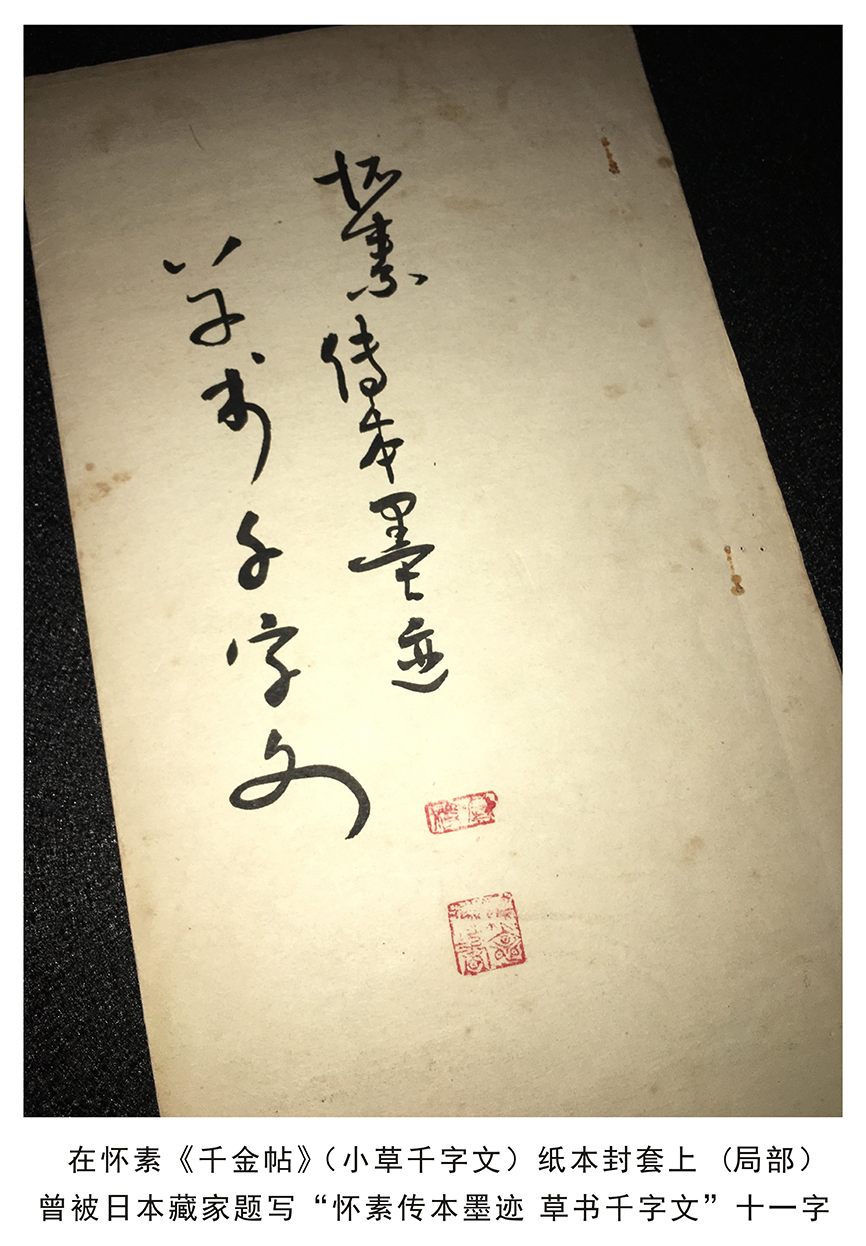 怀素传本墨迹
草书千字文
在怀素《千金帖》（小草千字文）纸本封套上（局部）
曾被日本藏家题写“怀素传本墨迹 草书千字文”十一字